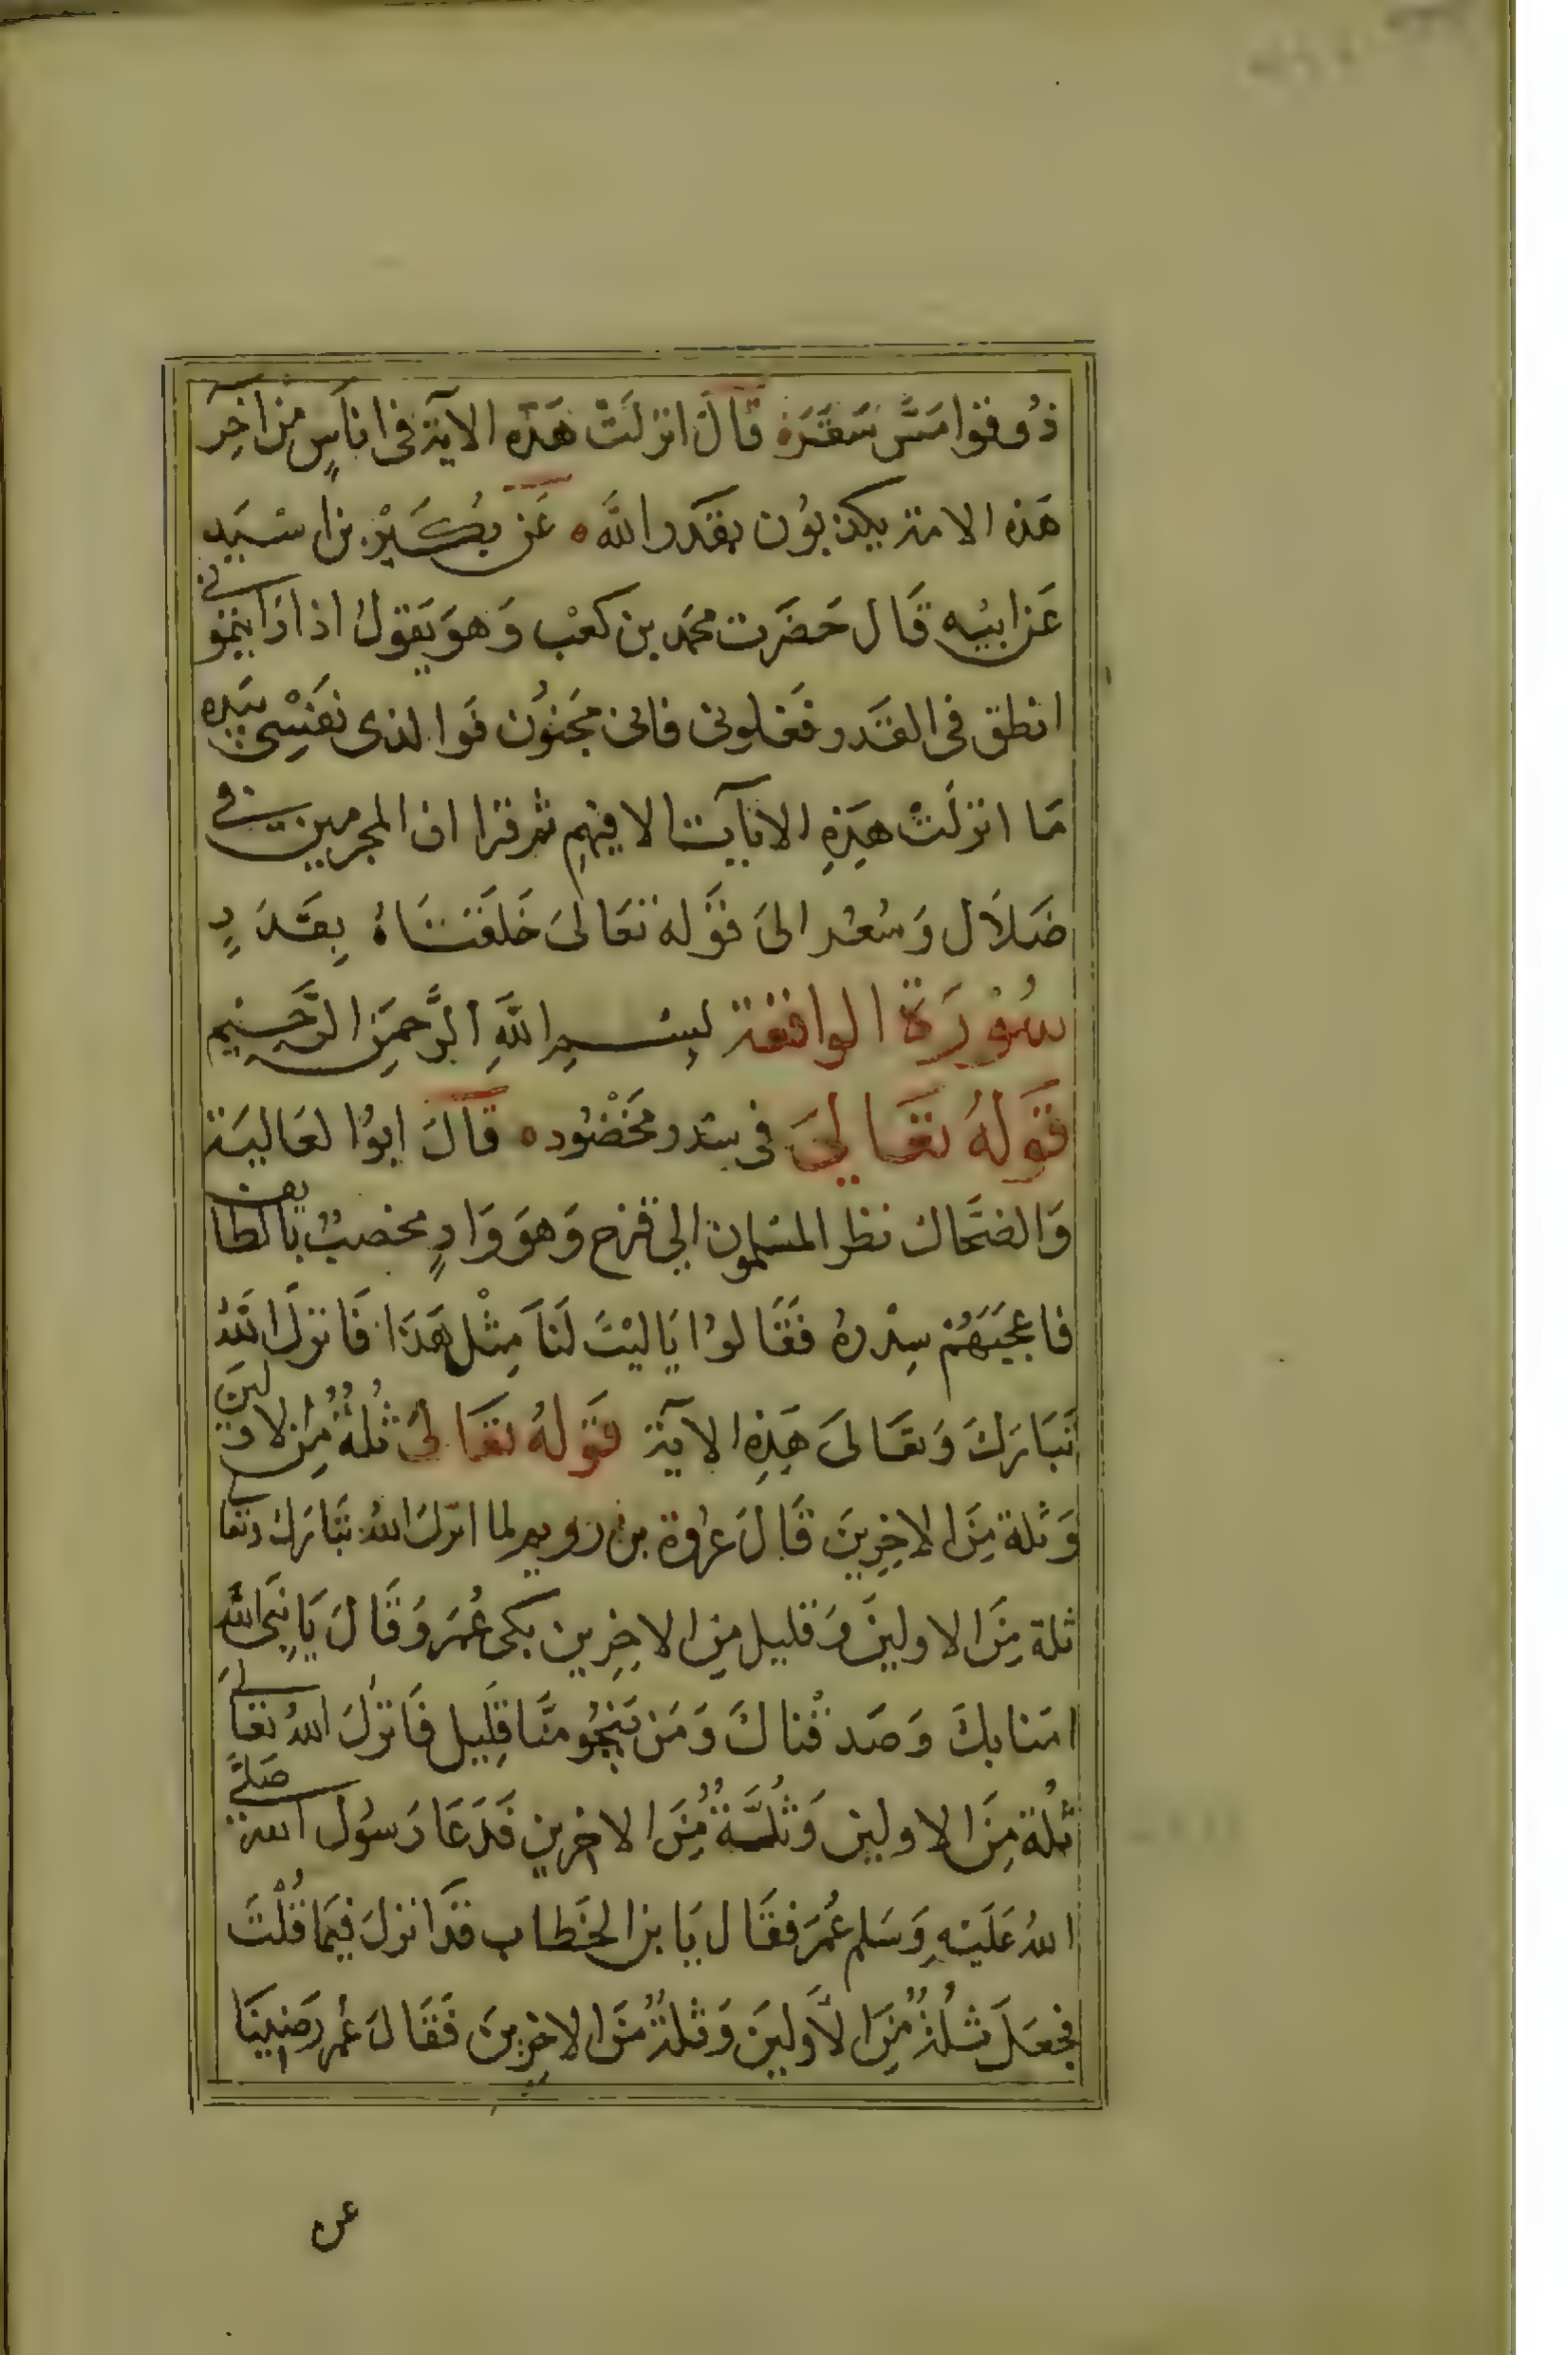 ذُوقوا مَسَّ سَقَرَه قَالَ انزلَتْ هَذِه الآية فى اناسٍ من اخِر
هَذه الامة يكذبُون بقَدر اللَّه ه عَن بُكَيْر بن اسَيد
عَن ابيْه قَال حَضَرت محمد بن كعْب وَهوَ يَقولُ اذا رَايتمونى
انطق فى القَدر فَغلونى فانى مَجنوُن فَوالذى نفسِى بيَدِه
مَا انزلَتْ هَذِهِ الاياَت الا فيهِم ثم قرا ان المجرمين فى
ضَلاَل وَسُعُر الىَ قَوَله تعَالىَ خَلقنَاهُ بِقَدَرٍ
سُوْرَة الواقعة بِسْمِ اللَّهِ الرَّحمَنِ الرَّحِيْم
قَولهُ تعَالىَ فى سدر مَخْضُوده قَالَ ابوُ العَاليَة
وَالضحَّاك نظر المسَلمون الي قزح وَهوَ وَادٍ مخصبٌ بالطايف
فاعجَبَهُم سِدْرهُ فَقَالوُا يَاليْتَ لَنَا مِثْل هَذَا فَانزلَ اللهُ
تَبَارَكَ وَتعَالىَ هَذِهِ الاَية قَوَلهُ تعَالىَ ثُلةٌ مِن الاولين
وَثلة مِنَ الاخِرِينَ قَالَ عروة بن رويم لما انزلَ اللهُ تبَارَك وتعالى
ثلة مِنَ الاولينَ وَقليل مِن الاخِرِين بكى عُمَر وَقَالَ يَا نبِىَ الله
امَنا بكَ وَصَدقْناكَ وَمَن يَنجُو منَّا قلِيل فَانزلَ اللهُ تعَالى
ثُلة مِنَ الاولين وَثُلَّةٌ مِنَ الاخرين فَدَعَا رَسوُل الله صَلى
اللهُ عَلَيْهِ وَسَلم عُمَر فقَال يَا بن الخَطاب قدَ انزلَ فيمَا قُلْتَ
فجعَلَ ثلُةٌ مِنَ الاَولينَ وَثلةٌ مِنَ الاخِرينَ فَقَالَ عُمر رَضينَا
عن